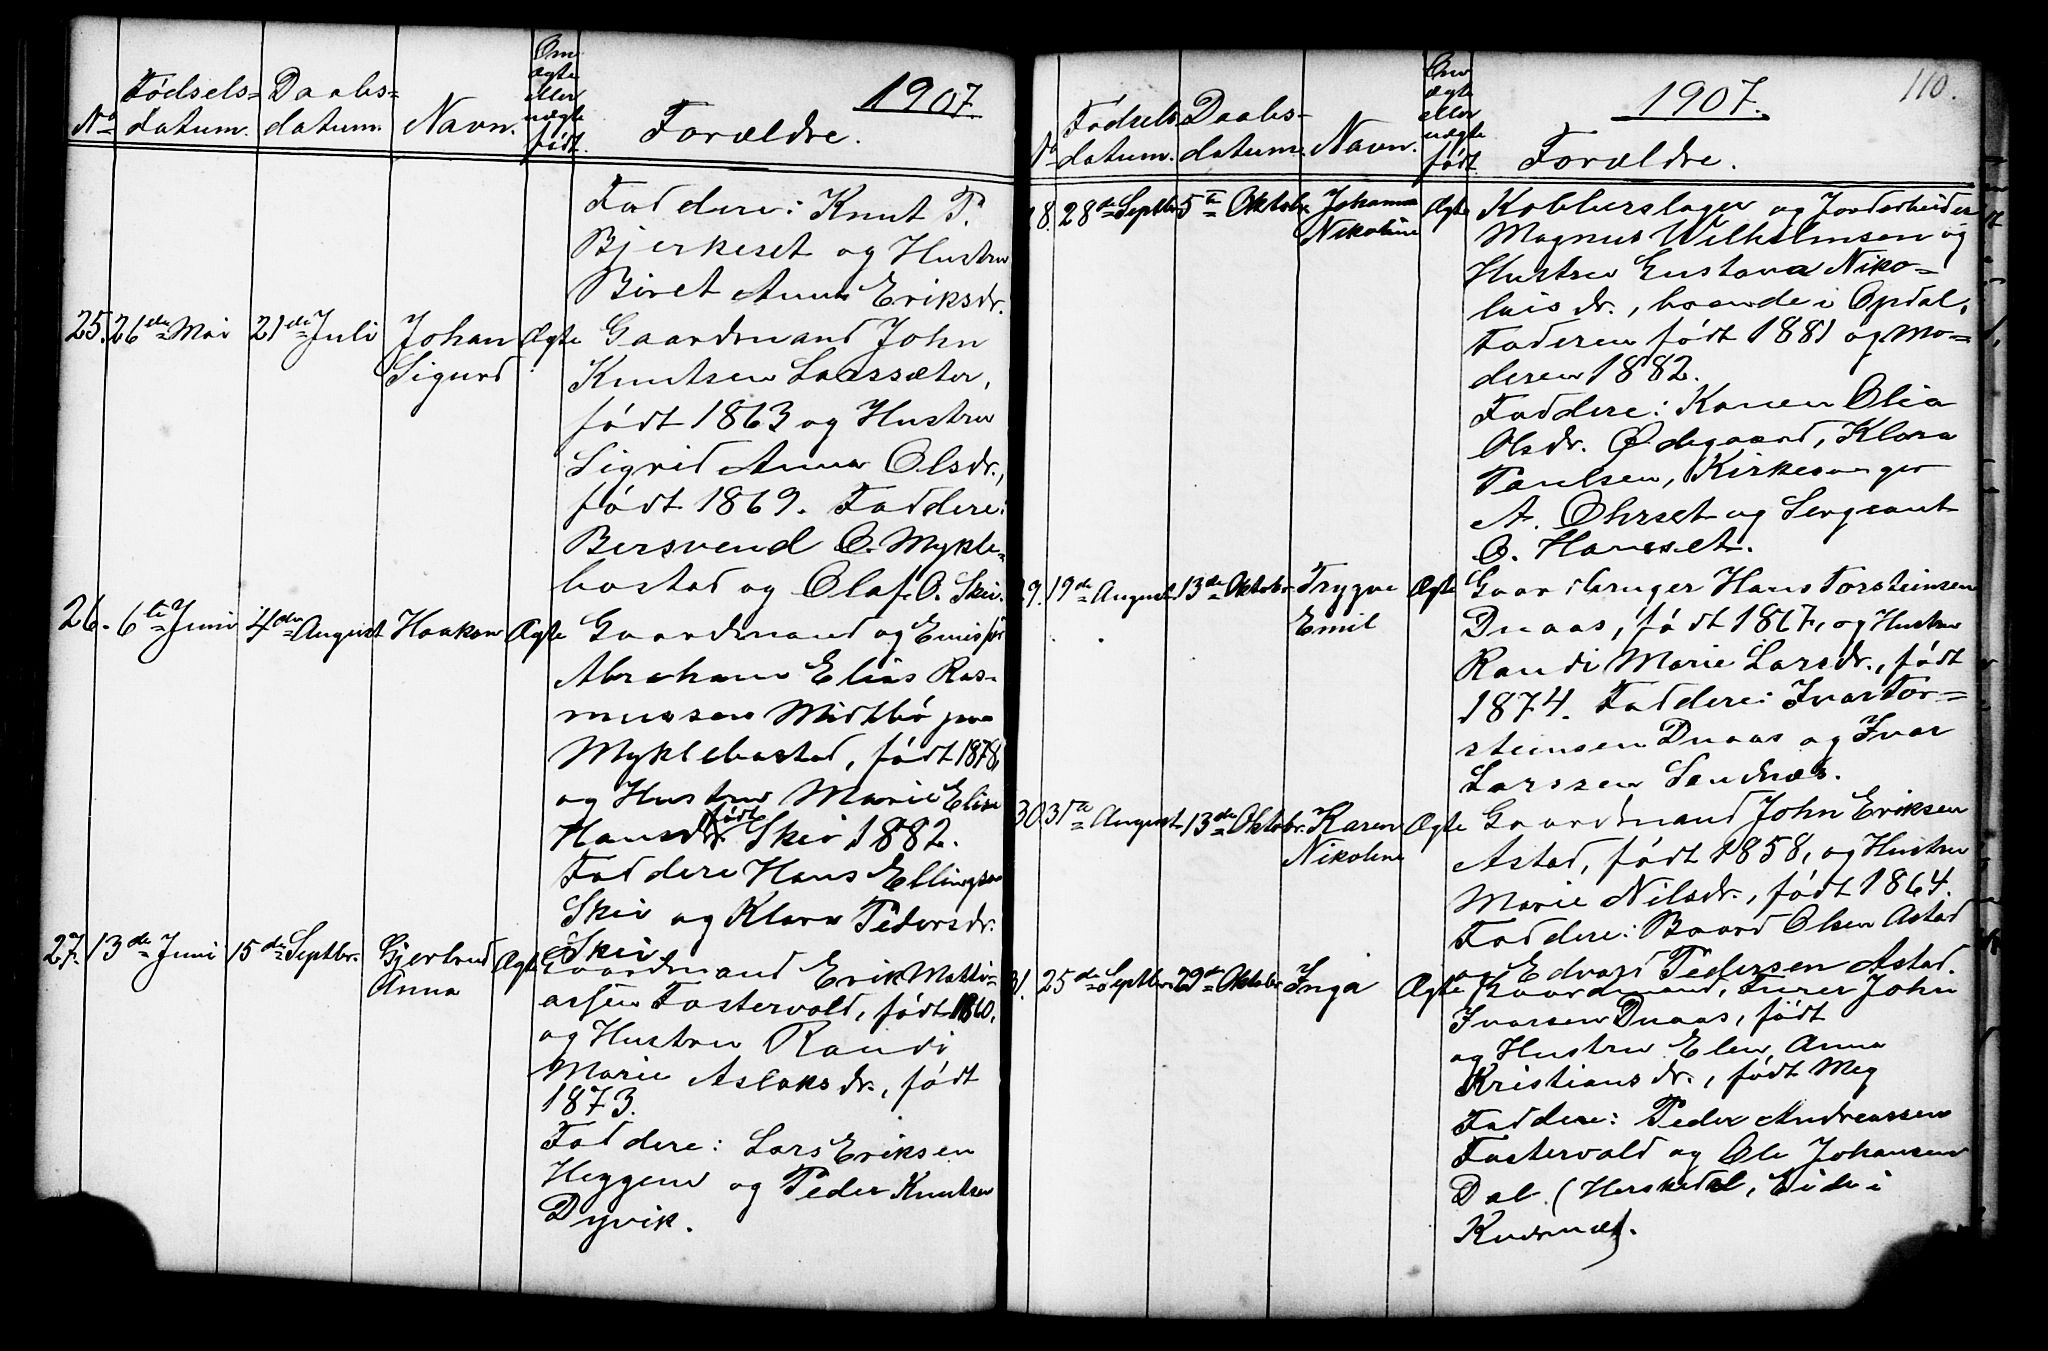 1907.
No Fødselsdatum. Daabsdatum. Navn. Om ægte eller uægte født. Forældre.
Faddere: Knut P.
Bjerkeset og Hustru
Beret Anna Eriksdr.
25. 26de Mai 21de Juli Johan Sigurd Ægte Gaardmand John
Knutsen Larssæter,
født 1863 og Hustru
Sigrid Anna Olsdr.,
født 1869. Faddere:
Bersvend O. Mykle-
bostad og Olaf O. Skei.
26. 6te Juni 4de August Haakon Ægte Gaardmand og
Abraham Elias Ras-
mussen Midtbö paa
Myklebostad, født 1878,
og Hustru Marie Elise
Hansdr. født Skei 1882.
Faddere Hans Ellingsen
Skei og Klara Pedersdr.
Skei
27. 13de Juni 15de Septbr. Gjertrud Anna Ægte Gaardmand Erik Matti-
assen Fostervold, født 1860,
og Hustru Randi
Marie Aslaksdr., født
1873.
Faddere: Lars Eriksen
Heggem og Peder Knutsen
Dyvik.
110.
1907.
No Fødselsdatum. Daabsdatum. Navn. Om ægte eller uægte født. Forældre.
8. 28de Septbr. 5te Oktobr. Johanna Nikoline Ægte Kobberslager og Jordarbeider
Magnus Wilhelmsen og
Hustru Gustava Niko-
laisdr., boende i Opdal,
Faderen født 1881 og Mo-
deren 1882.
Faddere: Konen Olia
Olsdr. Ødegaard, Klara
Paulsen, Kirkesanger
A. Ohrset og Sergeant
O. Hansset.
9. 19de August 13de Oktobr. Trygve Emil Ægte Gaardbruger Hans Torsteinsen
Dnaas, født 1867, og Hustru
Randi Marie Larsdr., født
1874. Faddere: Ivar Tor-
steinsen Dnaas og Ivar
Larssen Sandnæs.
30. 31te August 13de Oktobr. Karen Nikoline Ægte Gaardmand John Eriksen
Astad, født 1858, og Hustru
Marie Nilsdr., født 1864.
Faddere: Baard Olsen Astad
og Edvard Pedersen Astad.
31. 25de Septbr. 29de Oktobr. Inga Ægte Gaardmand, Lærer John
Ivarsen Dnaas, født
og Hustru Elen Anna
Kristiansdr., født Meg
Faddere: Peder Andreassen
Fostervold og Ole Johansen
Dal. (Herskedal, Eide i
Kvernæs).